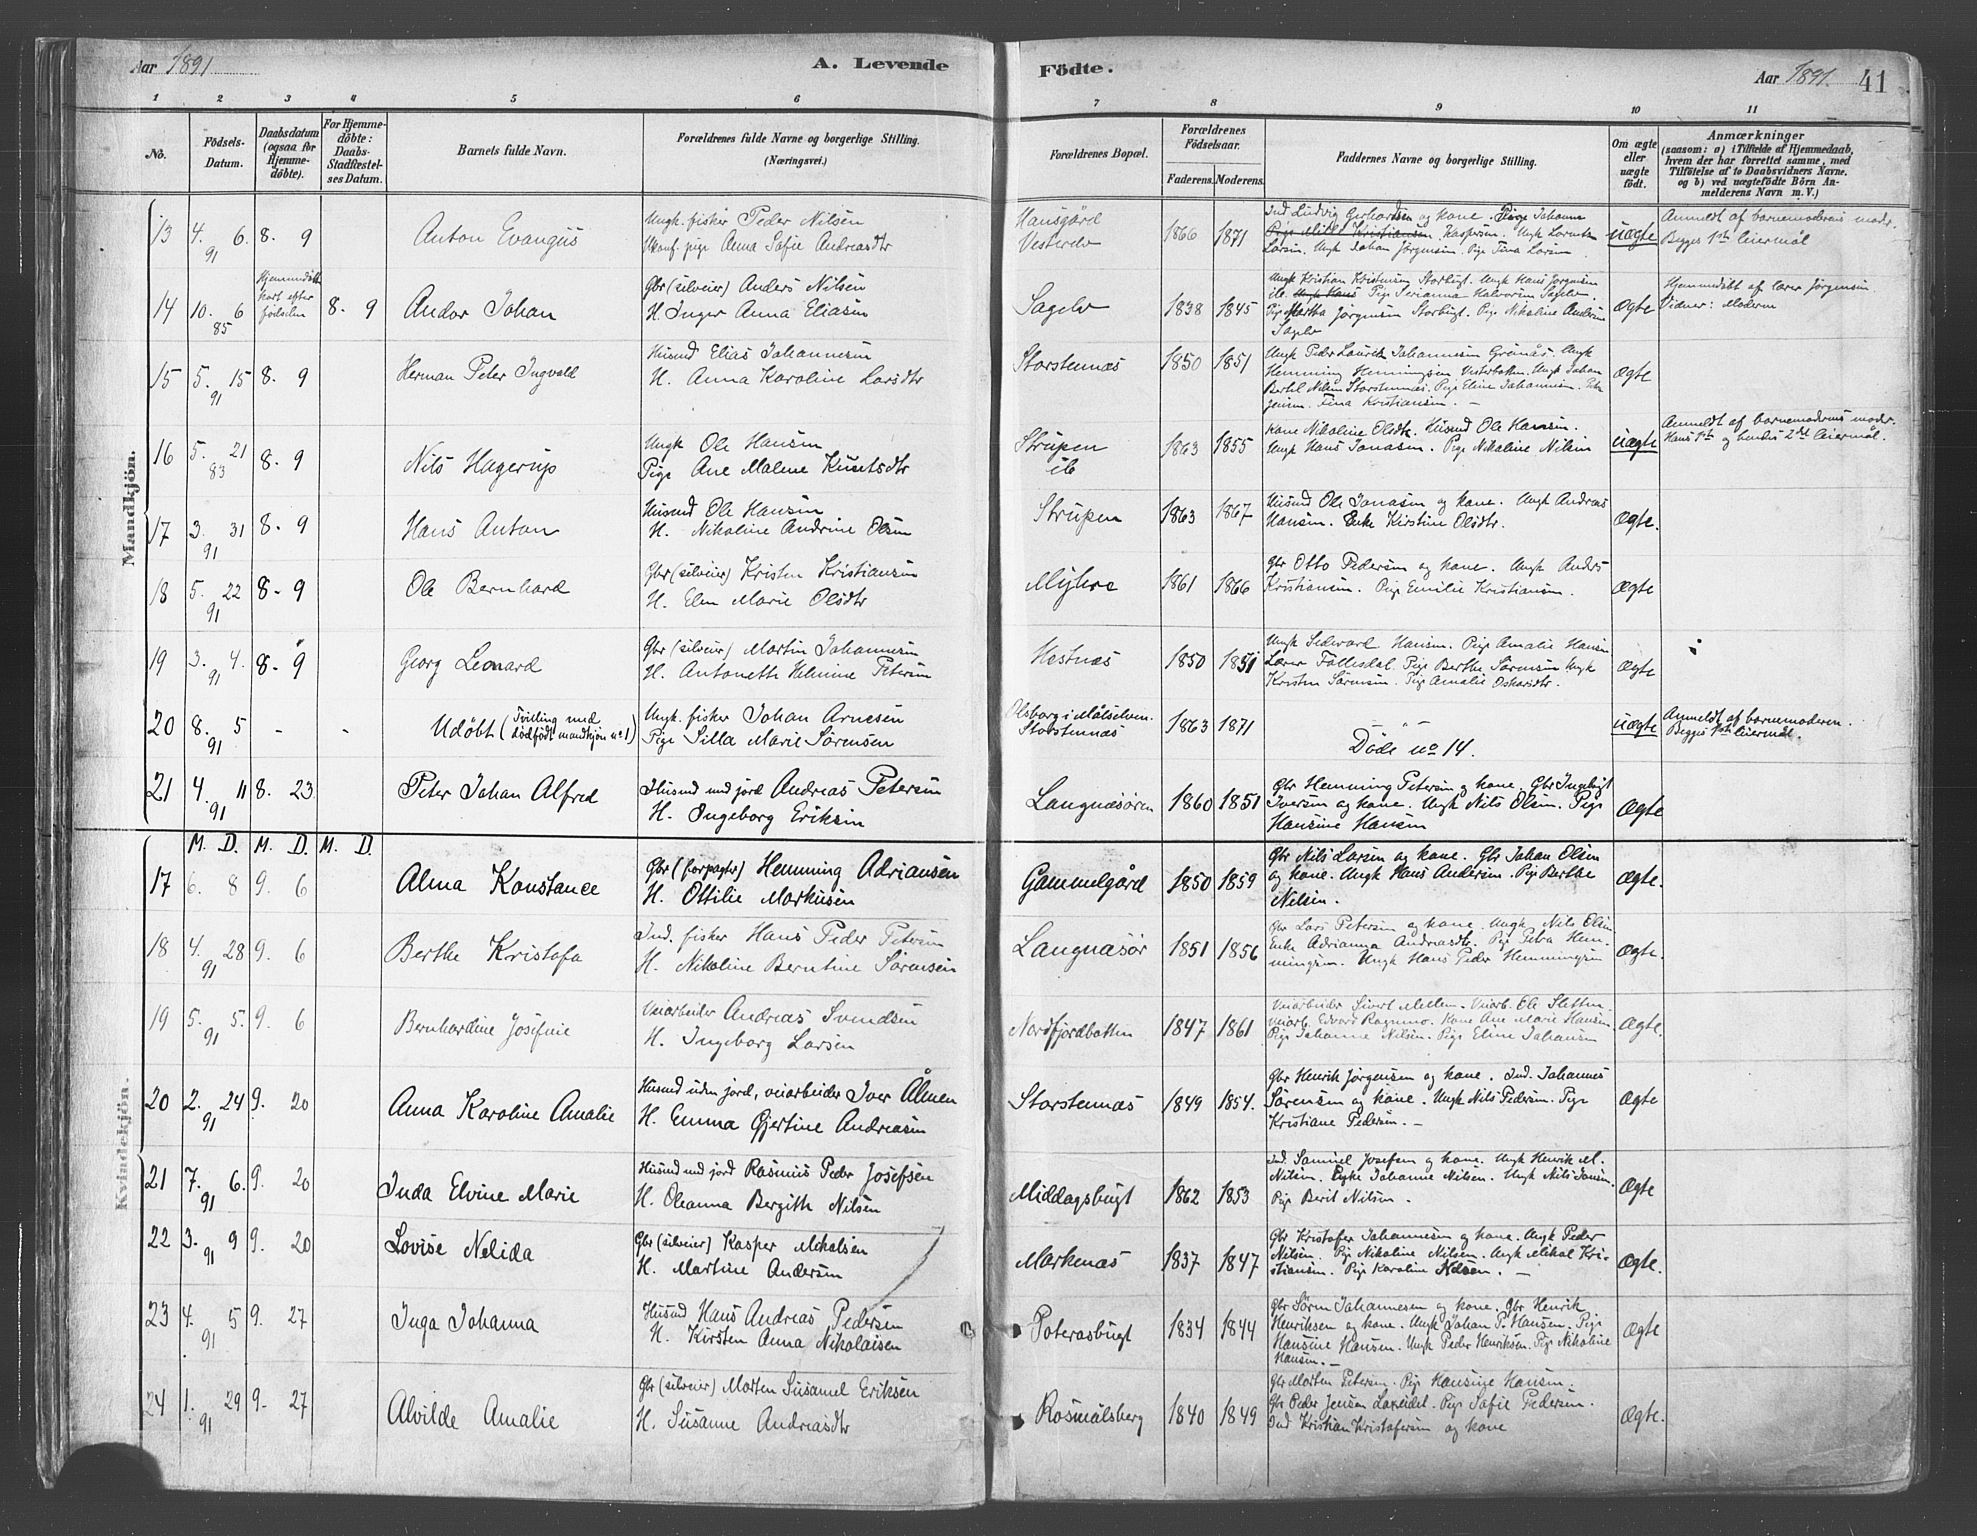 Aar 1891
A. Levende
Födte.
Aar 1891.
41
1 2 3 4 5 6 7 8 9 10 11
No.
Födsels-Datum.
Daabsdatum (ogsaa for Hjemme-døbte).
For Hjemme-døbte: Daabs-Stadfæstel-ses Datum.
Barnets fulde Navn.
Forældrenes fulde Navne og borgerlige Stilling.
(Næringsvei.)
Forældrenes Bopæl.
Forældrenes Födselsaar.
Faderens. Moderens.
Faddernes Navne og borgerlige Stilling.
Om ægte eller uægte født.
Anmærkninger
(saasom: a) i Tilfælde af Hjemmedaab,
hvem der har forrettet samme, med
Tilföielse af to Daabsvidners Navne.
og b) ved uægtefödte Börn An-
melderens Navn m. V.)
Mandkjön.
13 4. 6. 91 8. 9 Anton Evangus
Ungk. fisker Peder Nilsen
pige Anna Sofie Andreasdtr
Hansgård
Vesterelv
1866 1871
Ind Ludvig Gerhardsen og kone. Pige Johanna
Kaspersen. Ungk
Larsen. Ungk Johan Jørgensen. Pige Tina Larsen.
uægte
Anmeldt af barnemoderens moder.
Begges 1ste leiermål
14 10. 6 85 Hjemmedøbt kort efter födselen 8. 9 Andor Johan
Gbr (silveier) Anders Nilsen
H. Inger Anna Eliasen
Sagelv
1838 1845
Ungk Kristian Kristensen Storbugt. Ungk Hans Jørgensen
ib. Pige Serianna Halvorsen Sagelv.
Pige Martha Jørgensen Storbugt. Pige Nikoline Andersen
Sagelv
Ægte
Hjemmedøbt af lærer Jørgensen
Vidner: Moderen
15 5. 15 91 8. 9 Herman Peter Ingvald
Husmd Elias Johannesen
H. Anna Karoline Larsdtr
Storstennæs
1850 1851
Ungk Peder Laurits Johannesen Grønås. Ungk
Hemming Henningsen Vesterbotten. Ungk Johan
Bertel Nilsen Storstennæs. Pige Eline Johannesen.
Jensen. Tina Kristiansen. –
Ægte
16 5. 21 83 8. 9 Nils Hagerup
Ungk Ole Hansen
Pige Ane Malene Knutsdtr
Strupen
ib
1863 1855
Kone Nikoline Olsdtr. Husmd Ole Hansen.
Ungk Hans Jonasen. Pige Nikoline Nilsen
uægte
Anmeldt af barnemoderens moder.
Hans 1ste og hendes 2det leiermål.
17 3. 31 91 8. 9 Hans Anton
Husmd Ole Hansen
H. Nikoline Andrine Olsen
Strupen
1863 1867
Husmd Ole Jonasen og kone. Ungk Andreas
Hansen. Enke Kirstine Olsdtr.
Ægte.
18 5. 22 91 8. 9 Ole Bernhard
Gbr (silveier) Kristen Kristiansen
H. Elen Marie Olsdtr
Myhre
1861 1866
Gbr Otto Pedersen og kone. Ungk Anders
Kristiansen. Pige Emilie Kristiansen.
Ægte
19 3. 4. 91 8. 9 Georg Leonard
Gbr (silveier) Martin Johannesen
H. Antonette Helmine Petersen
Hestnæs
1850 1851
Ungk Sedevard Hansen. Pige Amalie Hansen
Lærer Follesdal. Pige Berthe Sørensen Ungk
Kristen Sørensen. Pige Amalie Oskarsdtr.
Ægte
20 8. 5 91 - - Udöbt (Tvilling med dödfödt mandkjøn no 1)
Ungk. fisker Johan Arnesen
Pige Silla Marie Sørensen
Olsborg i Målselven.
Storstennæs
1863 1871
Döde no 14.
uægte
Anmeldt af barnemoderen.
Begges 1ste leiermål.
21 4. 11 91 8. 23 Peter Johan Alfred
Husmd med jord Andreas Petersen
H. Ingeborg Eriksen
Langnæsören
1860 1851
Gbr Hemming Petersen og kone. Gbr Ingebrigt
Iversen og kone. Ungk Nils Olsen. Pige
Hansine Hansen
Ægte
Kvindekjön.
M. D. M. D. M. D.
17 6. 8 9. 6 Alma Konstance
Gbr (forpagter) Hemming Adriansen
H. Ottilie Markusen
Gammelgård
1850 1859
Gbr Nils Larsen og kone. Gbr Johan Olsen
og kone. Ungk Hans Andersen. Pige Berthe
Nilsen.
Ægte.
18 4. 28 91 9. 6 Berthe Kristofa
Ind. fisker Hans Peder Petersen
H. Nikoline Berntine Sørensen
Langnæsör
1851 1856
Gbr Lars Petersen og kone. Ungk. Nils Olsen
Enke Adrianna Andreasdtr. Pige Petra Hem-
mingsen. Ungk Hans Peder Hemmingsen
Ægte.
19 5. 5. 91 9. 6 Bernhardine Josefine
Veiarbeider Andreas Svendsen
H. Ingeborg Larsen
Nordfjordbotten
1847 1861
Veiarbeider Sivert Mellem. Veiarb. Ole Sletten
Veiarb. Edvard Kone Ane Marie Hansen.
Pige Johanne Nilsen. Pige Eline Johansen
Ægte.
20 2. 24 91 9. 20 Anna Karoline Amalie
Husmd uden jord, veiarbeider Iver Ålmen
H. Emma Gjertine Andreasen
Storstennæs
1849 1854.
Gbr Henrik Jørgensen og kone. Ind. Johannes
Sørensen og kone. Ungk Nils Pedersen. Pige
Kristiane Pedersen. –
Ægte
21 7. 6. 91 9. 20 Inda Elvine Marie
Husmd med jord Rasmus Peder Josefsen
H. Oleanna Bergith Nilsen
Middagsbugt
1862 1853
Ind. Samuel Josefsen og kone. Ungk Henrik M.
Nilsen. Pige Johanne Nilsen. Ungk Nils Jansen.
Pige Berit Nilsen.
Ægte
22 3. 9 91 9. 20 Lovise Nelida
Gbr (silveier) Kasper Mikalsen
H. Martine Andersen
Markenæs
1837 1847
Gbr Kristofer Johannesen og kone. Ungk Peder
Nilsen. Pige Nikoline Nilsen. Ungk Mikal Kri-
stiansen. Pige Karoline Nilsen. –
Ægte.
23 4. 5 91 9. 27 Inga Johanna
Husmd Hans Andreas Pedersen
H. Kirsten Anna Nikolaisen
Poterasbugt
1834 1844
Gbr Sören Johannesen og kone. Gbr Henrik
Henriksen og kone. Ungk Johan P. Hansen. Pige
Hansine Hansen. Ungk Peder Henriksen. Pige Nikoline
Hansen. –
Ægte
24 1. 29 91 9. 27 Alvilde Amalie
Gbr (silveier) Morten Susamel Eriksen
H. Susanne Andreasdtr
Rosmålsberg
1840 1849
Gbr Morten Petersen. Pige Hansine Hansen.
Gbr Peder Jensen Lakeidet. Pige Sofie Pedersen.
Ind Kristian Kristofersen og kone
Ægte.